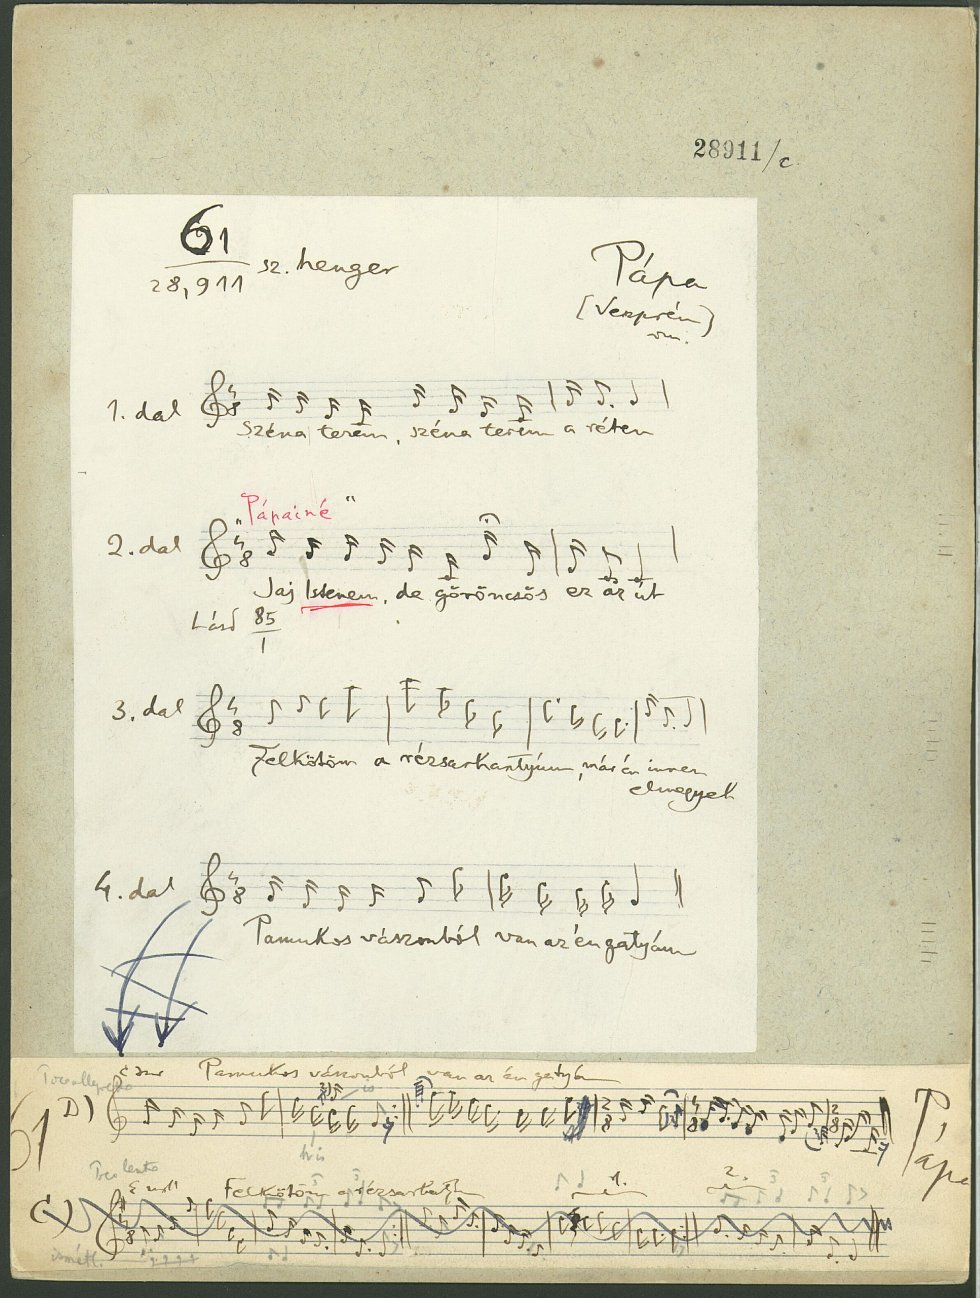 28911/c
61
28,911 sz. henger
Pápa
(Veszprém)
vm.
1. dal
Széna terem, széna terem a réten
"Pápainé"
2. dal
Jaj Istenem, de göröncsös ez az út
Lásd 85
1
3. dal
Felkötöm a rézsarkantyúm, már én innen
elmegyek
4. dal
Pamukos vászonból van az én gatyám
Poco allegretto
Pamukos vászonból van az én gatyám
61
D)
Pápa
Poco lento
Felkötöm a rézsarkantyúm
1.
2.
C)